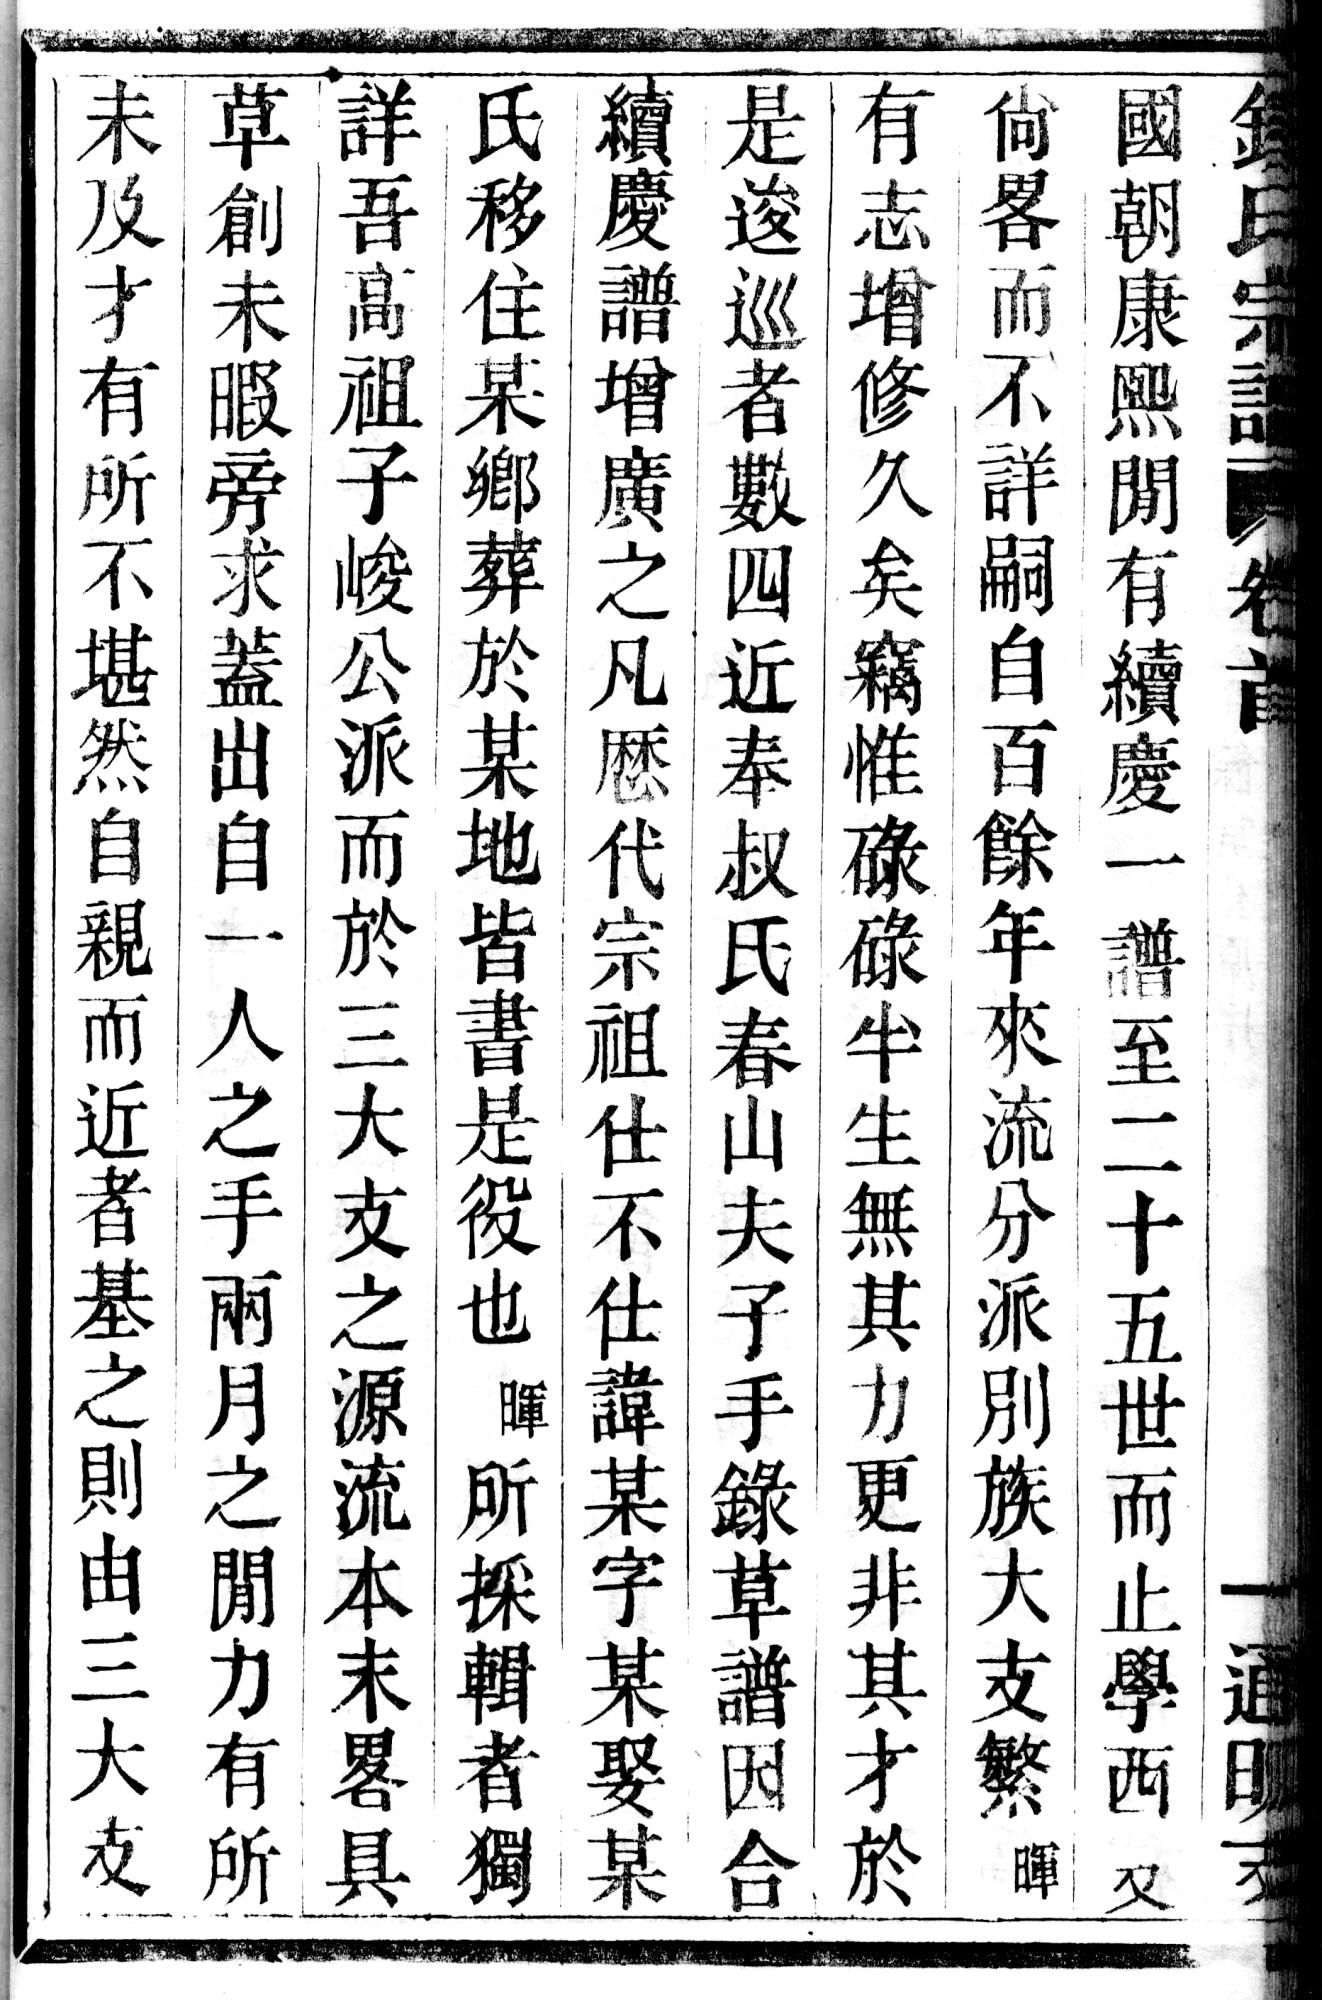 錢氏宗譜 卷首 一 通明支
國朝康熙閒有續慶一譜至二十五世而止學西又
尙畧而不詳嗣自百餘年來流分派別族大支繁暉
有志增修久矣竊惟碌碌半生無其力更非其才於
是逡巡者數四近奉叔氏春山夫子手錄草譜因合
續慶譜增廣之凡歷代宗祖仕不仕諱某字某娶某
氏移住某鄉葬於某地皆書是役也暉所採輯者獨
詳吾高祖子峻公派而於三大支之源流本末畧具
草創未暇旁求蓋出自一人之手兩月之閒力有所
未及才有所不堪然自親而近者基之則由三大支